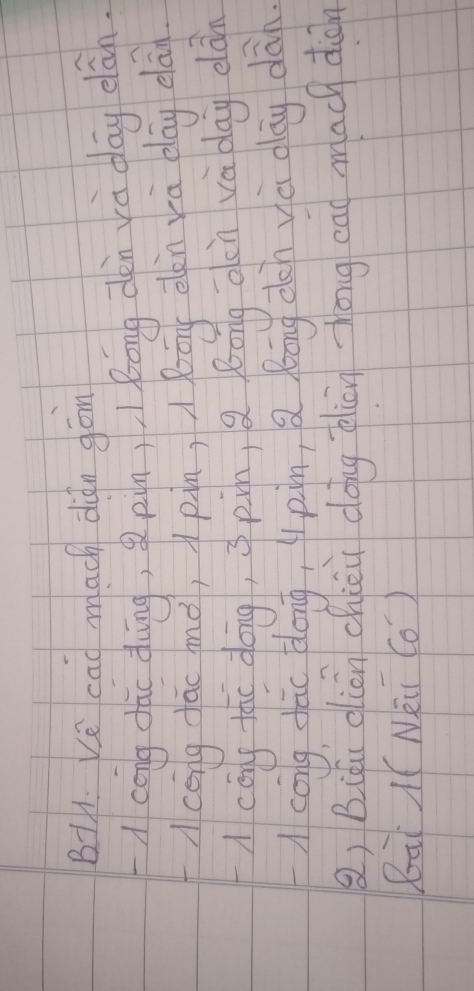 BT1. Vẽ các mạch điện gồm
- 1 công tắc đúng, 2 pin, 1 bóng đèn và dây dẫn.
- 1 công tắc mở, 1 pin, 1 bóng đèn và dây dẫn.
- 1 công tắc đóng, 3 pin, 2 bóng đèn và dây dẫn
- 1 công tắc đóng, 4 pin, 2 bóng đèn và dây dẫn.
2) Biểu diễn chiều dòng điện trong các mạch điện
bài 1 ( Nếu Có )